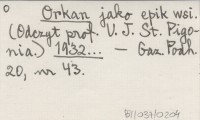 o
Orkan jako epik wsi.
(Odczyt prof. U. J. St. Pigo-
nia.) 1932... — Gaz. Podh.
20, nr 43.
BJ/037/0204